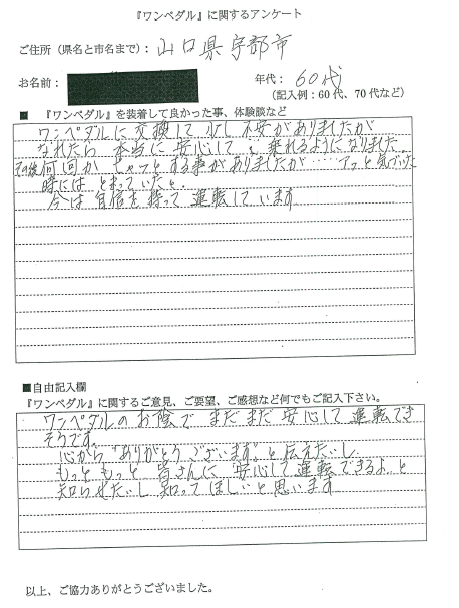 『ワンペダル』に関するアンケート
ご住所（県名と市名まで）：山口県宇部市
お名前：
年代：60代
（記入例：60代、70代など）
■ 『ワンペダル』を装着して良かった事、体験談など
ワンペダルに交換して少し不安がありましたが
なれたら本当に安心して、乗れるようになりました
その後何回かヒヤッとする事がありましたが……アッと気づいた
時にはとまっていたと。
今は自信を持って運転しています
■自由記入欄
『ワンペダル』に関するご意見、ご要望、ご感想など何でもご記入下さい。
ワンペダルのお陰でまだまだ安心して運転でき
そうです。
心から"ありがとうございます"と伝えたいし
もっともっと皆さんに安心して運転できるよ。と
知らせたいし知ってほしいと思います
以上、ご協力ありがとうございました。